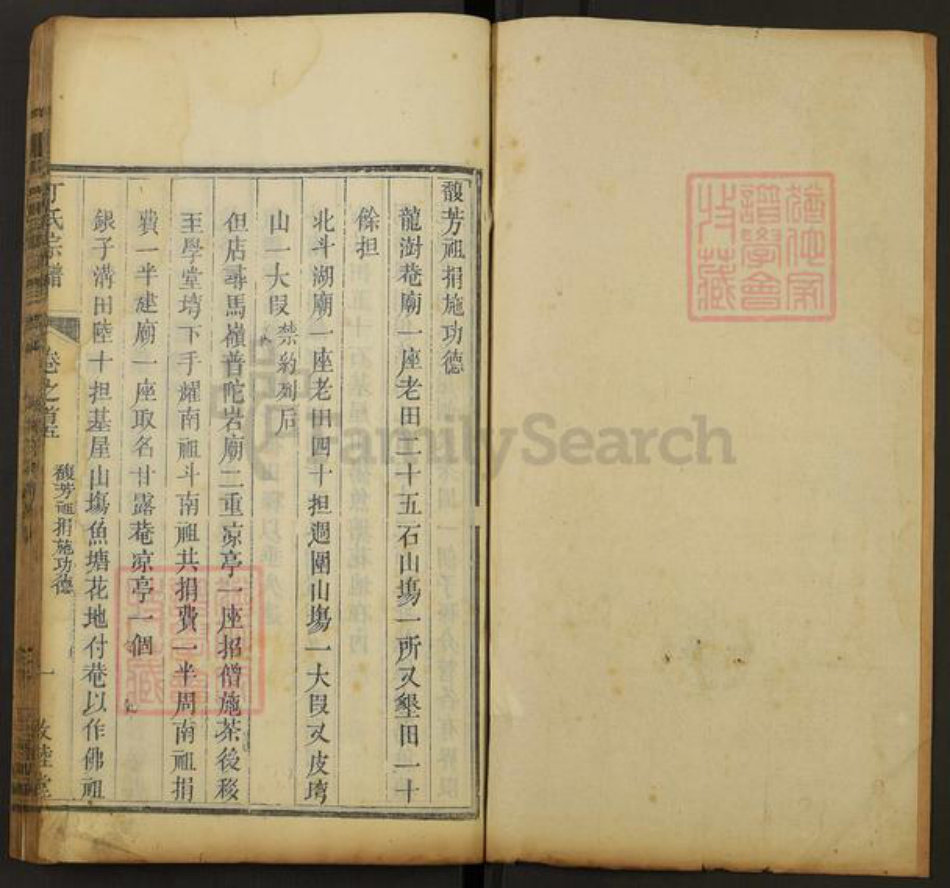 馥芳祖捐施功德
龍澍菴廟一座老田二十五石山塲一所又墾田一十
餘担
北斗湖廟一座老田四十担週圍山塲一大叚又皮塆
山一大叚禁約列后
但店尋馬嶺普陀岩廟二重凉亭一座招僧施茶後移
至學堂塆下手燿南祖斗南祖共捐費一半周南祖捐
費一半建廟一座取名甘露菴凉亭一個
錄子溝田陸十担基屋山塲魚塘花地付菴以作佛祖
丁氏宗譜
卷之首五
馥芳祖捐施功德
一
敦睦堂
譜學會
收藏
FamilySearch